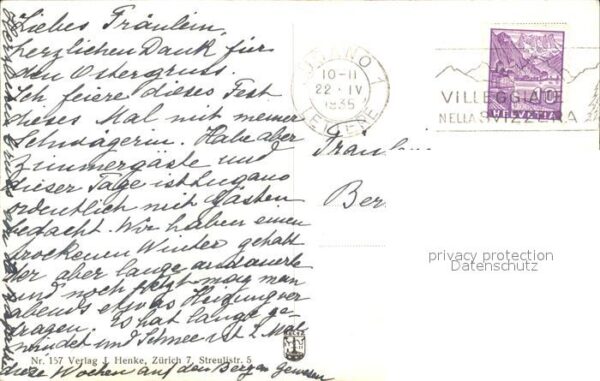 Liebes Fräulein,
herzlichen Dank für
den Ostergruss.
Ich feiere dieses Fest
dieses Mal mit meiner
Schwägerin. Habe aber
Zimmergäste und
dieser Tage ist Lugano
ordentlich mit Gästen
bedacht. Wir haben einen
trockenen Winter gehabt
der aber lange andauerte
und noch jetzt mag man
abends etwas Heizung ver
tragen. Es hat lange ge-
windet und Schnee ist 2 Mal
diese Wochen auf den Bergen gewesen
Nr. 157 Verlag J. Henke, Zürich 7, Streulistr. 5
LUGANO 1
10-11
22·IV
1935
VILLEGGIA
NELLA SVIZZERA
10
HELVETIA
Fräulein
Ber
privacy protection
Datenschutz